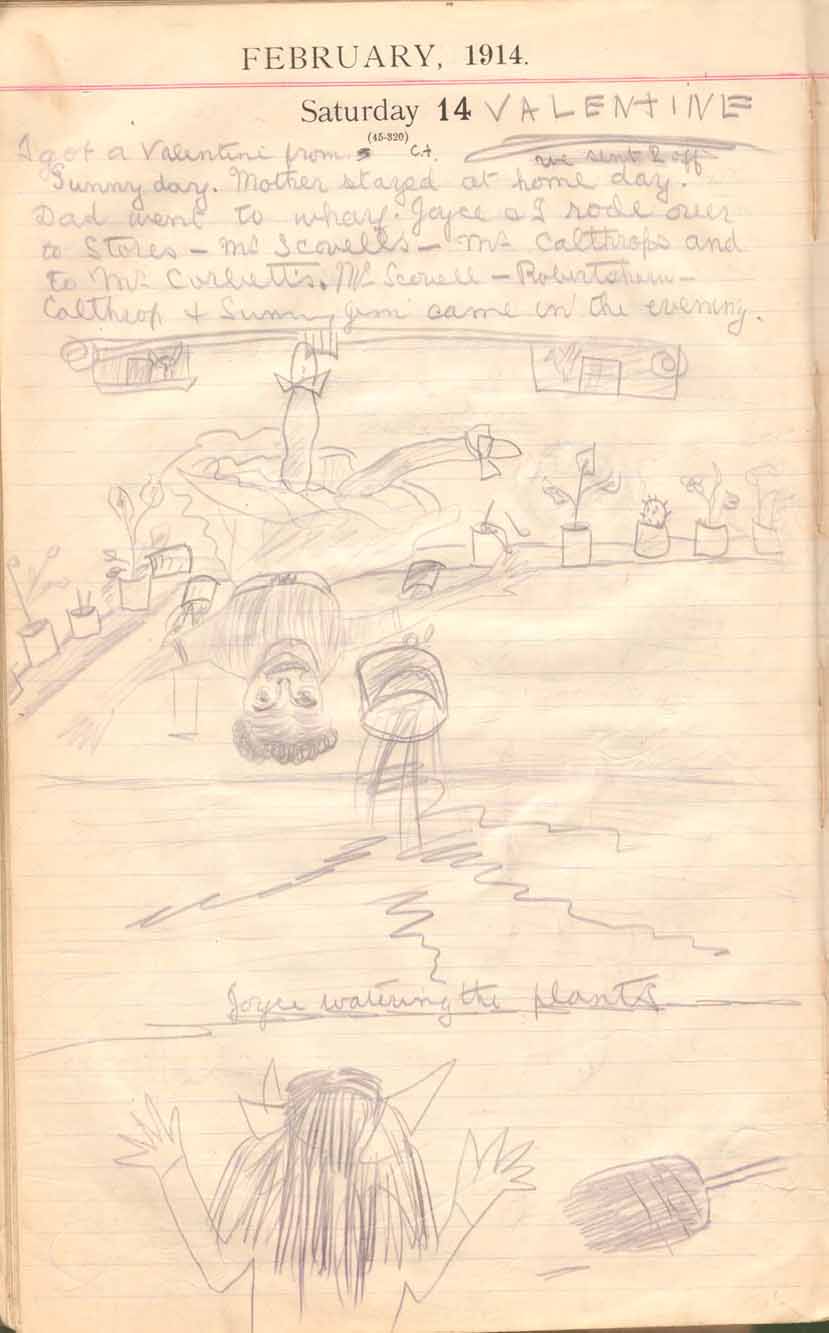 FEBRUARY, 1914.
Saturday 14 VALENTINE
(45-320)
I got a Valentine from C.A. we sent 2 off
Sunny day. Mother stayed at home day.
Dad went to wharf. Joyce & I rode over
to Stores – Mr Scovells – Mrs Calthrops and
to Mrs Corbett's. Mr Scovell – Robertsham –
Calthrop & Sunny Jim came in the evening.
Joyce watering the plants